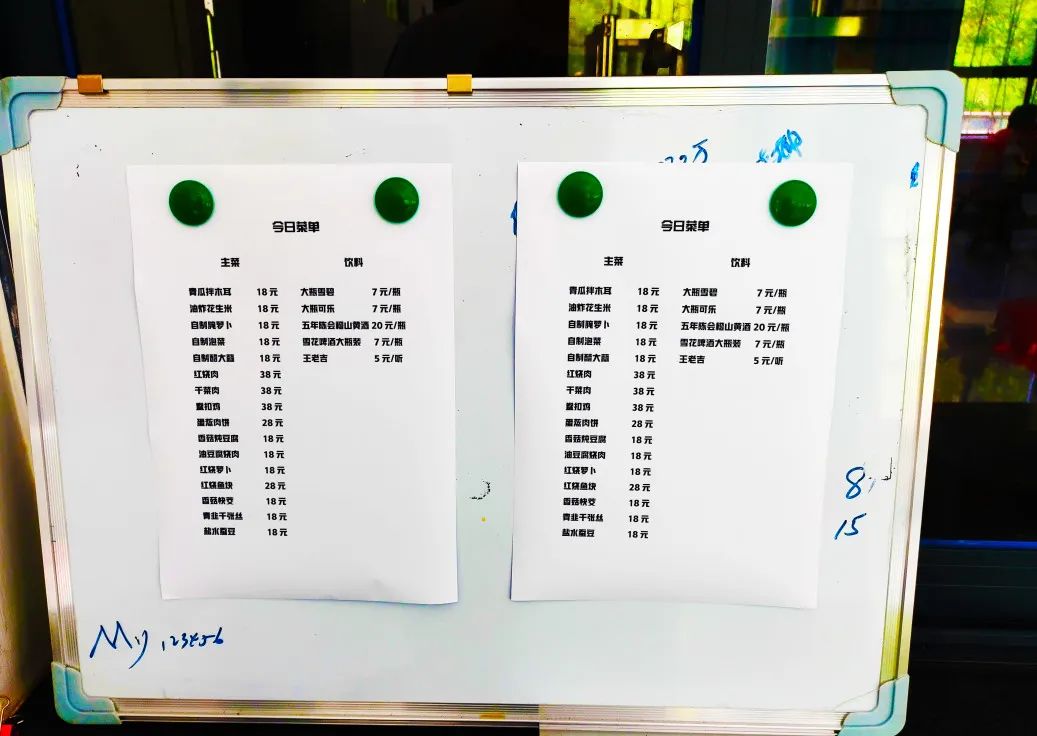 今日菜单
主菜 饮料
青瓜拌木耳 18元 大瓶雪碧 7元/瓶
油炸花生米 18元 大瓶可乐 7元/瓶
自制腌萝卜 18元 五年陈会稽山黄酒 20元/瓶
自制泡菜 18元 雪花啤酒大瓶装 7元/瓶
自制醋大蒜 18元 王老吉 5元/听
红烧肉 38元
干菜肉 38元
鲞扣鸡 38元
蛋蒸肉饼 28元
香菇炖豆腐 18元
油豆腐烧肉 18元
红烧萝卜 18元
红烧鱼块 28元
香菇快茭 18元
青韭千张丝 18元
盐水蚕豆 18元
今日菜单
主菜 饮料
青瓜拌木耳 18元 大瓶雪碧 7元/瓶
油炸花生米 18元 大瓶可乐 7元/瓶
自制腌萝卜 18元 五年陈会稽山黄酒 20元/瓶
自制泡菜 18元 雪花啤酒大瓶装 7元/瓶
自制醋大蒜 18元 王老吉 5元/听
红烧肉 38元
干菜肉 38元
鲞扣鸡 38元
蛋蒸肉饼 28元
香菇炖豆腐 18元
油豆腐烧肉 18元
红烧萝卜 18元
红烧鱼块 28元
香菇快茭 18元
青韭千张丝 18元
盐水蚕豆 18元
8
15
My 123456